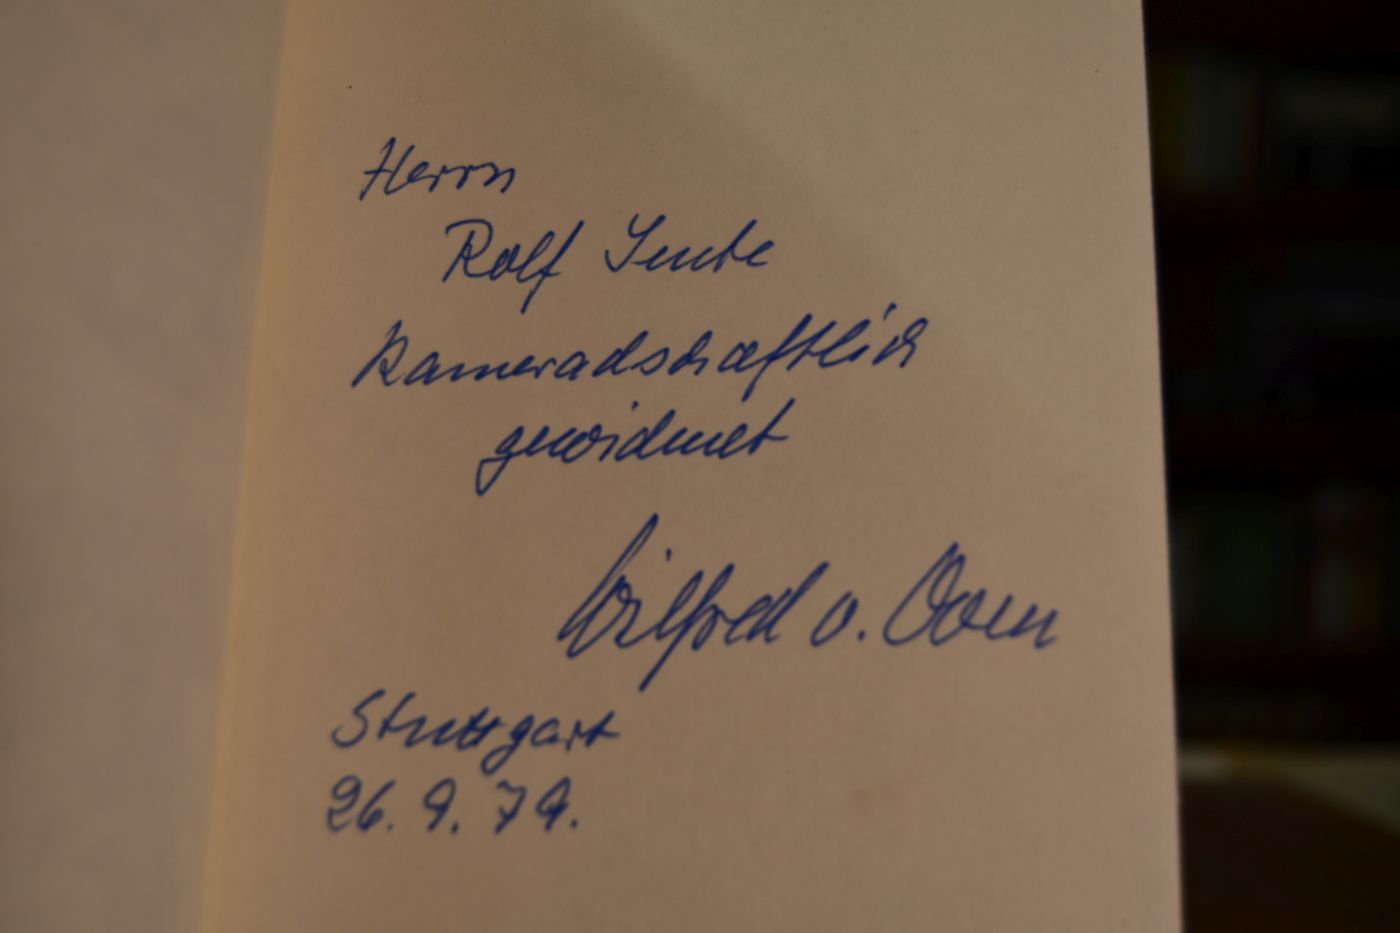 Herrn
Rolf
Kameradschaftlich
gewidmet
Wilfred v. Oven
Stuttgart
26. 9. 79.